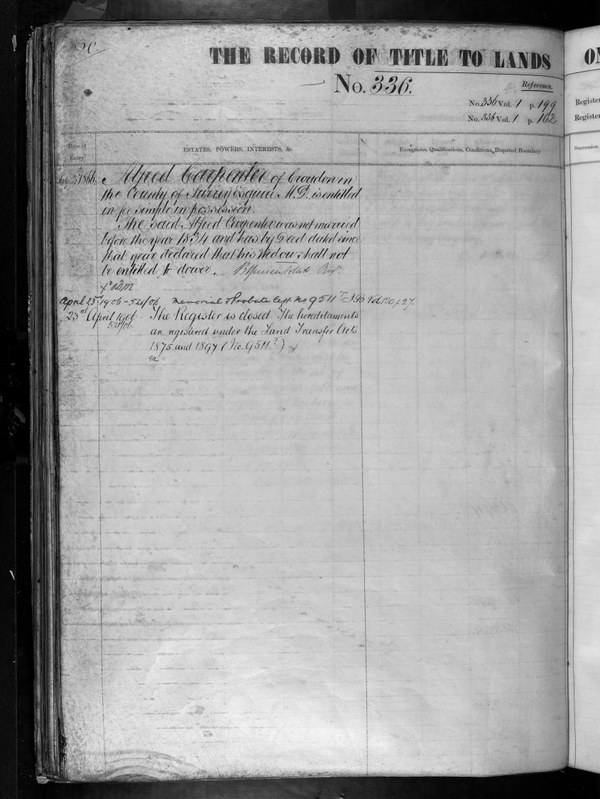 THE RECORD OF TITLE TO LANDS
No. 336.
Reference.
No. 336 Vol. 1 p. 199
No. 336 Vol. 1 p. 162
Date of Entry
ESTATES, POWERS, INTERESTS, &c.
Exceptions, Qualifications, Conditions, Disputed Boundary
1866 Alfred Carpenter of Croydon in
the County of Surrey Esquire M.D. is entitled
in fee simple in possession.
The said Alfred Carpenter was not married
before the year 1834 and has by Deed dated since
that year declared that his Widow shall not
be entitled to dower.
April 25th 1906 Memorial of Probate No 9511
25th April 1906 The Register is closed. The hereditaments
are registered under the Land Transfer Acts
1875 and 1897 (No. 9511)
ON
Register
Register
Succession